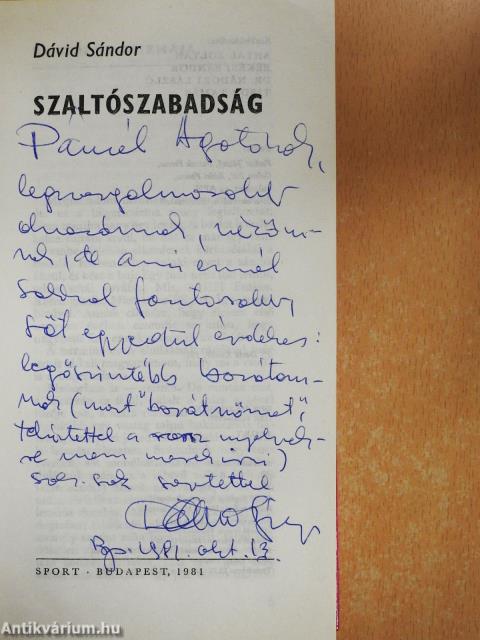 Dávid Sándor
SZALTÓSZABADSÁG
Pámél Ágotának,
legszorgalmasabb
olvasómnak, nézőm-
nek, de ami ennél
sokkal fontosabb,
sőt egyedül érdekes:
legőszintébb barátom-
nak (mert "barátnőmet",
tekintettel a rossz nyelvek-
re nem merek írni)
sok-sok szeretettel
Bp. 1981. okt. 13.
SPORT · BUDAPEST, 1981
Antikvárium.hu